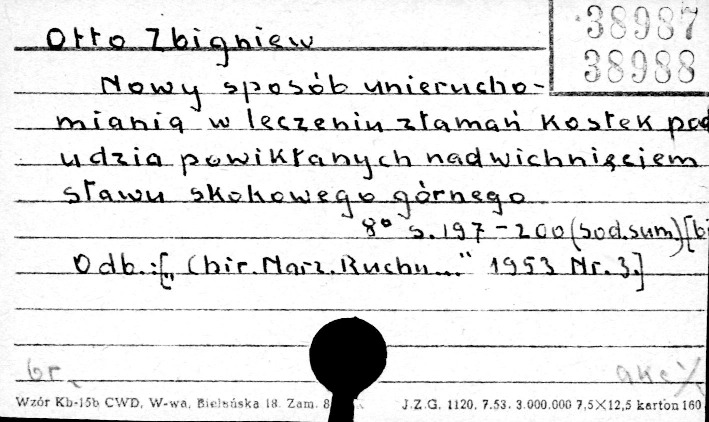 Otto Zbigniew
38987
38988
Nowy sposób unierucho-
miania w leczeniu złamań kostek pod
udzia powikłanych nadwichnięciem
stawu skokowego górnego
8° s.197-200 (sod.sum) [bi
Odb.:[„Chir.Narz.Ruchu..." 1953 Nr.3.]
br. akc
Wzór Kb-15b CWD, W-wa, Bielańska 18. Zam. 8 J.Z.G. 1120. 7.53. 3.000.000 7,5×12,5 karton 160